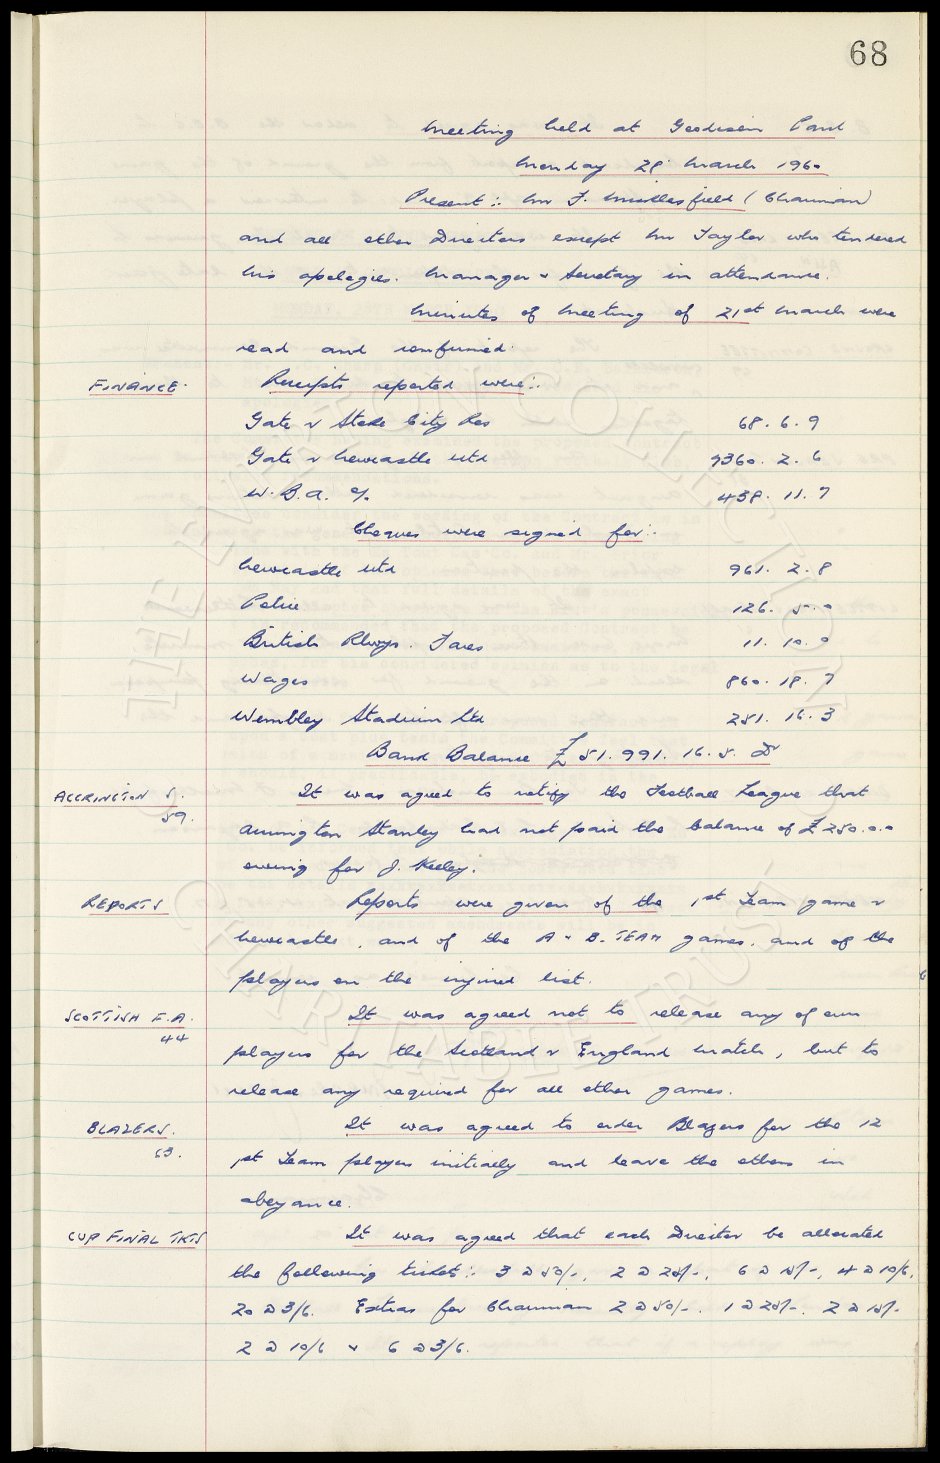 68
Meeting held at Goodison Park
Monday 28 March 1960
Present :- Mr F. Micklesfield (Chairman)
and all other Directors except Mr Taylor who tendered
his apologies. Manager & Secretary in attendance.
Minutes of Meeting of 21st March were
read and confirmed.
FINANCE. Receipts reported were :-
Gate v Stoke City Res 68. 6. 9
Gate v Newcastle Utd 9360. 2. 6
W.B.A. % 438. 11. 7
Cheques were signed for :-
Newcastle Utd 961. 2. 8
Police 126. 5. 0
British Rlwys. Fares 11. 10. 0
Wages 860. 18. 7
Wembley Stadium Ltd 251. 16. 3
Bank Balance £51.991. 16. 5. Dr
ACCRINGTON S. It was agreed to notify the Football League that
59. Accrington Stanley had not paid the balance of £250.0.0
owing for J. Keeley.
REPORTS Reports were given of the 1st Team game v
Newcastle, and of the A & B. TEAM games, and of the
players on the injured list.
SCOTTISH F.A. It was agreed not to release any of our
44 players for the Scotland v England match, but to
release any required for all other games.
BLAZERS. It was agreed to order Blazers for the 12
63. 1st Team players initially and leave the others in
abeyance.
CUP FINAL TKTS It was agreed that each Director be allocated
the following tickets :- 3 @ 50/-, 2 @ 25/-, 6 @ 15/-, 4 @ 10/6,
20 @ 3/6. Extras for Chairman 2 @ 50/-. 1 @ 25/-. 2 @ 15/-
2 @ 10/6 & 6 @ 3/6.
THE EVERTON COLLECTION
CHARITABLE TRUST